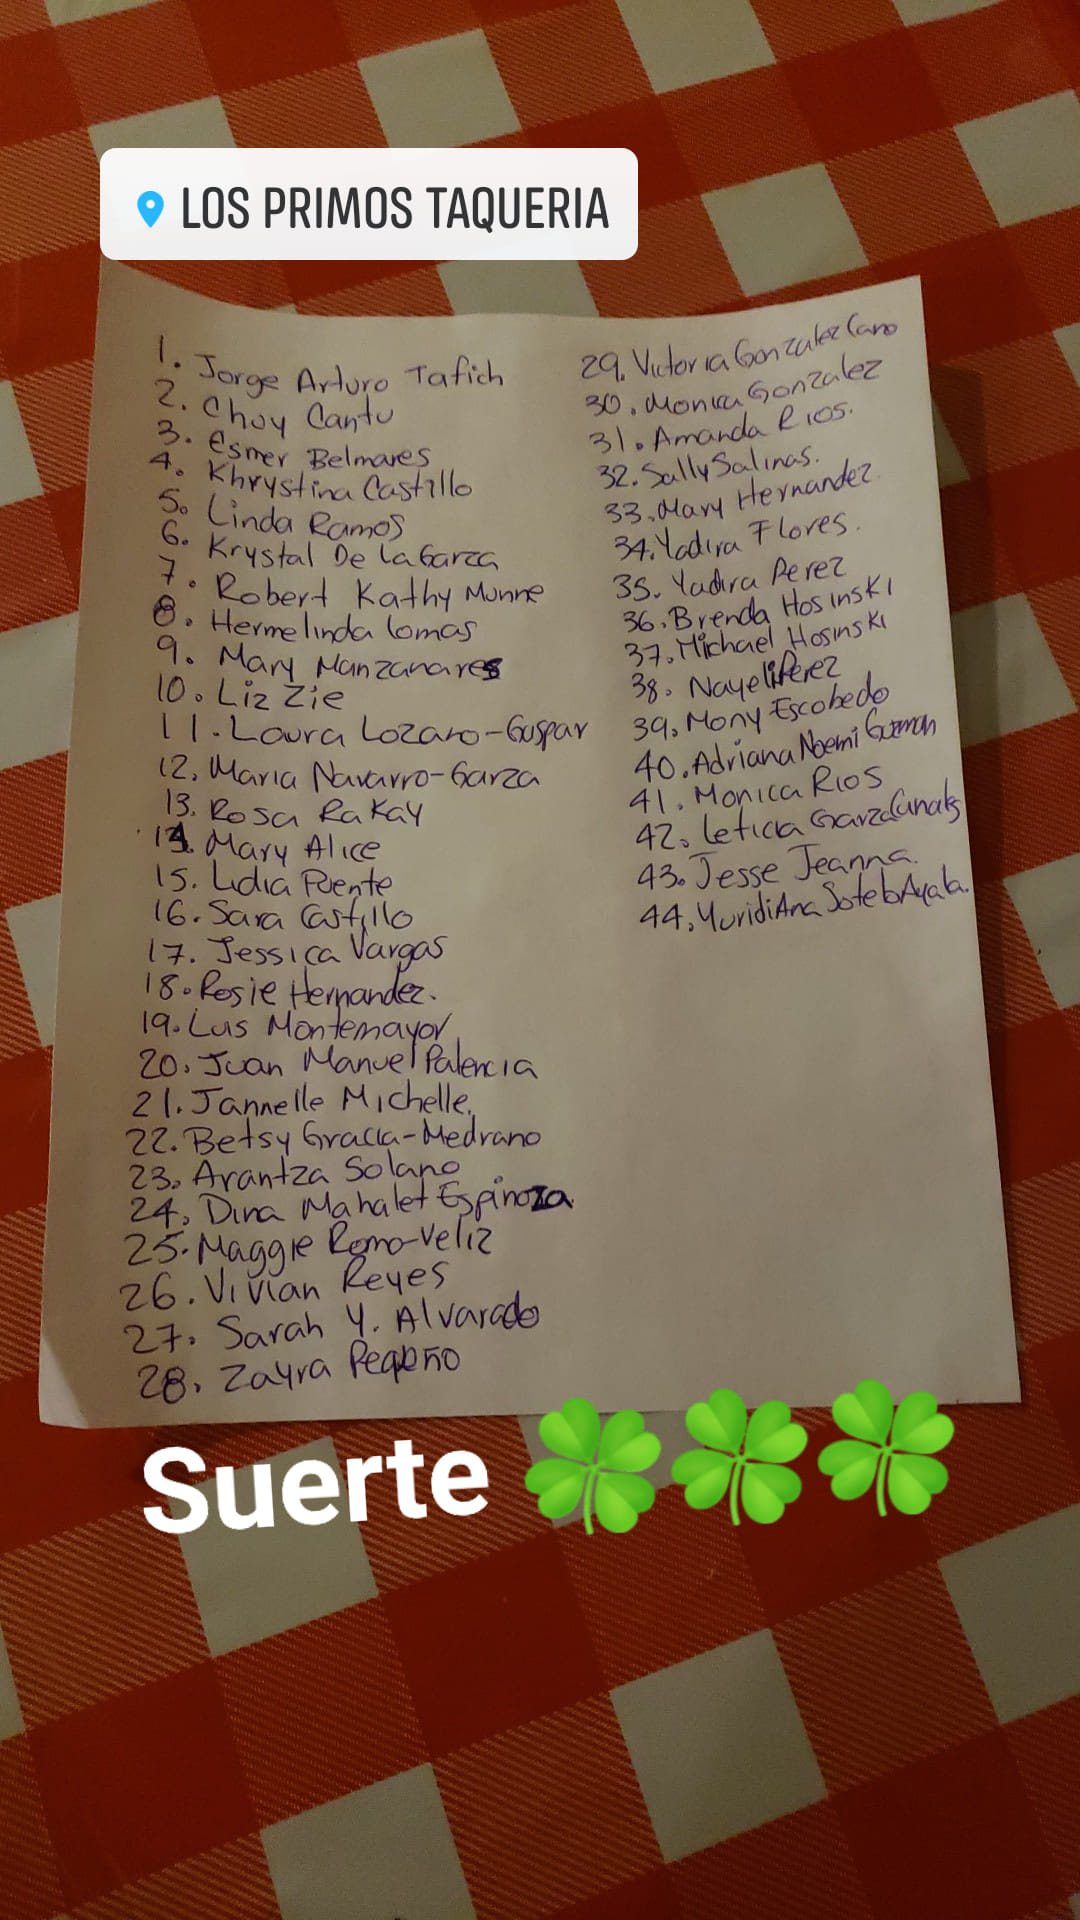 LOS PRIMOS TAQUERIA
1. Jorge Arturo Tafich
2. Chuy Cantu
3. Esmer Belmares
4. Khrystina Castillo
5. Linda Ramos
6. Krystal De La Garza
7. Robert Kathy Munne
8. Hermelinda Lomas
9. Mary Manzanares
10. Liz Zie
11. Laura Lozano-Guspar
12. Maria Navarro-Garza
13. Rosa RaKay
14. Mary Alice
15. Lidia Puente
16. Sara Castillo
17. Jessica Vargas
18. Rosie Hernandez.
19. Luis Montemayor
20. Juan Manuel Palencia
21. Jannelle Michelle.
22. Betsy Gracia-Medrano
23. Arantza Solano
24. Dina Mahalet Espinoza
25. Maggie Romo-Veliz
26. Vivian Reyes
27. Sarah Y. Alvarado
28. Zayra Peqeño
29. Victoria Gonzalez Cano
30. Monica Gonzalez
31. Amanda Rios.
32. Sally Salinas.
33. Mary Hernandez
34. Yadira Flores.
35. Yadira Perez
36. Brenda Hosinski
37. Michael Hosinski
38. Nayeli Perez
39. Mony Escobedo
40. Adriana Noemi Guzman
41. Monica Rios
42. Leticia Garza Canales
43. Jesse Jeanna.
44. YuridiAna Sotelo Ayala.
Suerte